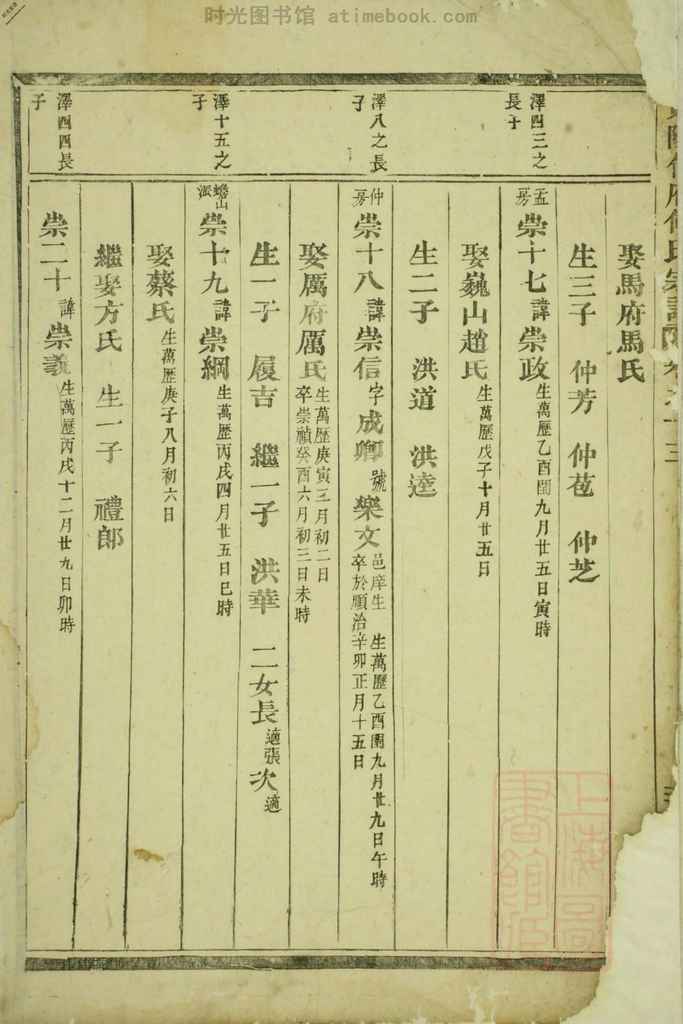 时光图书馆 atimebook.com
娶馬府馬氏
生三子 仲芳 仲苞 仲芝
澤四三之長子
孟房 崇十七諱崇政 生萬歷乙酉閏九月廿五日寅時
娶巍山趙氏 生萬歷戊子十月廿五日
生二子 洪道 洪逵
澤八之長子
仲房 崇十八諱崇信字成卿號樂文 邑庠生 生萬歷乙酉閏九月廿九日午時 卒於順治辛卯正月十五日
娶厲府厲氏 生萬歷庚寅三月初二日 卒崇禎癸酉六月初三日未時
生一子 履吉 繼一子 洪華 二女長適張次適
澤十五之子
蟾山派 崇十九諱崇綱 生萬歷丙戌四月廿五日巳時
娶蔡氏 生萬歷庚子八月初六日
繼娶方氏 生一子 禮郎
澤四四長子
崇二十諱崇羲 生萬歷丙戌十二月廿九日卯時
上海圖書館